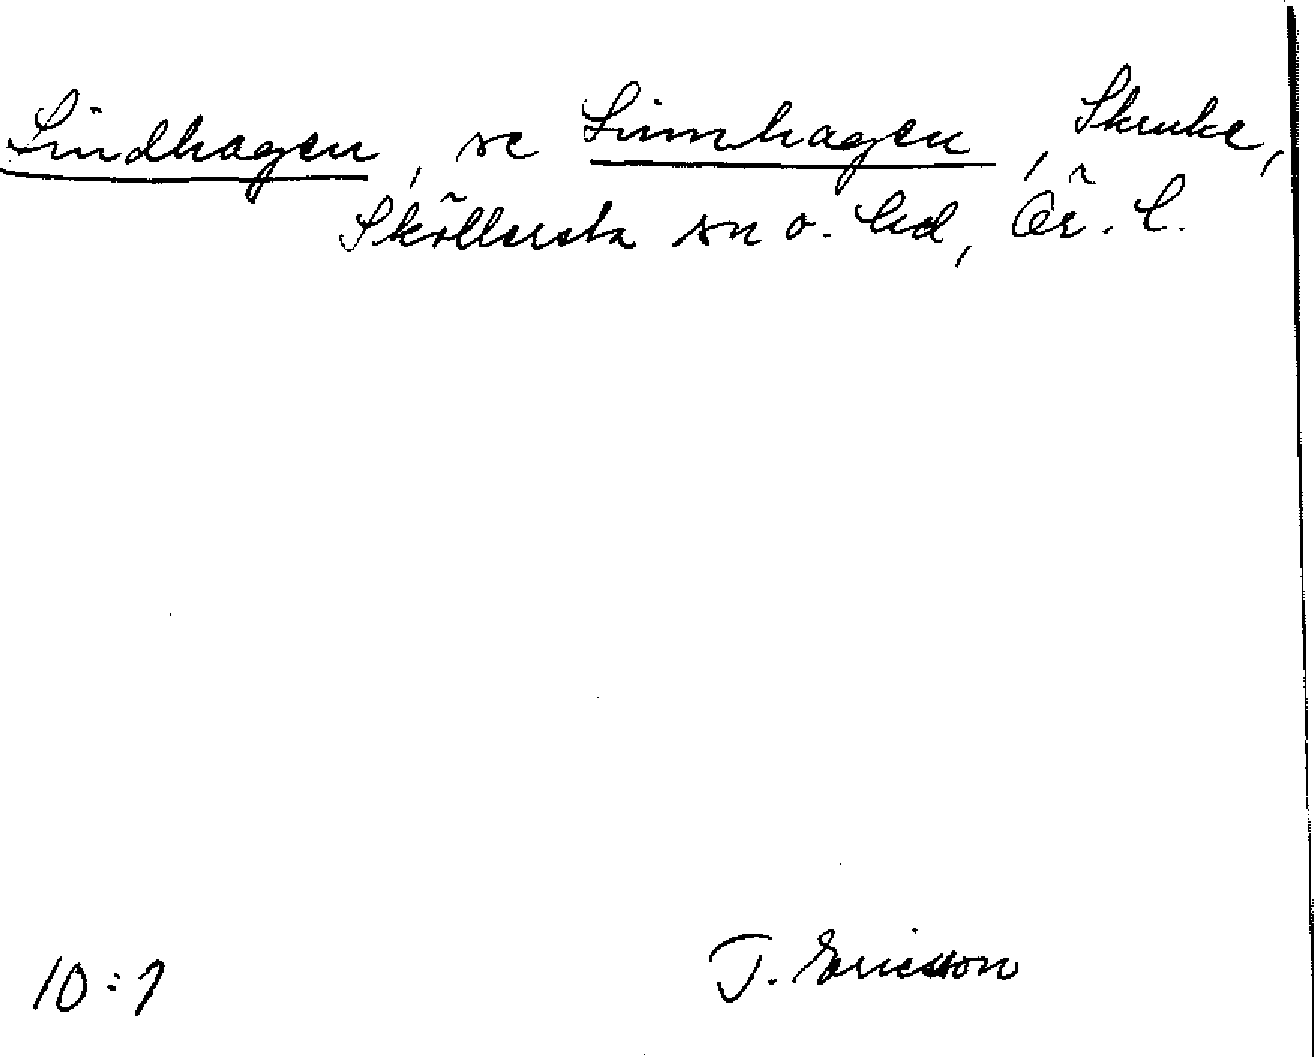 Lindhagen, se Limhagen, Skruke,
Sköllersta sn o. hd, Ör. l.
T. Ericsson
10:1